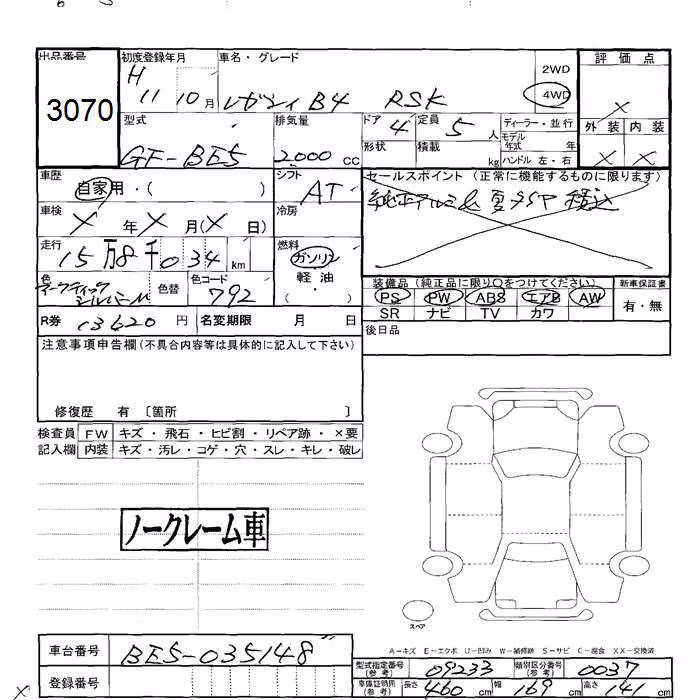 出品番号 初度登録年月 車名・グレード 2WD 評価点
3070 H 11 10月 レガシィB4 RSK 4WD ×
外装 内装
型式 排気量 ドア 定員 ディーラー・並行
GF-BE5 2000cc 4 5人 モデル年式 年 × ×
形状 積載 kg ハンドル 左・右
車歴 シフト セールスポイント (正常に機能するものに限ります)
自家用・( ) AT 純正アルミ& 夏タイヤ 積込
車検 × 年 × 月(× 日) 冷房
走行 15万8千034km 燃料 ガソリン
軽油
色 色替 色コード 792
装備品 (純正品に限り○をつけてください) 新車保証書
PS PW ABS エアB AW 有・無
SR ナビ TV カワ
R券 13620円 名変期限 月 日 後日品
注意事項申告欄(不具合内容等は具体的に記入して下さい)
修復歴 有 〔箇所 〕
検査員 FW キズ・飛石・ヒビ割・リペア跡・×要
記入欄 内装 キズ・汚レ・コゲ・穴・スレ・キレ・破レ
ノークレーム車
スペア
A-キズ E-エクボ U-凹み W-補修跡 S-サビ C-腐食 XX-交換済
車台番号 BE5-035148
型式指定番号(参考) 09233 類別区分番号(参考) 0037
登録番号
車庫証明用(参考) 長さ 460cm 幅 169cm 高さ 141cm
×